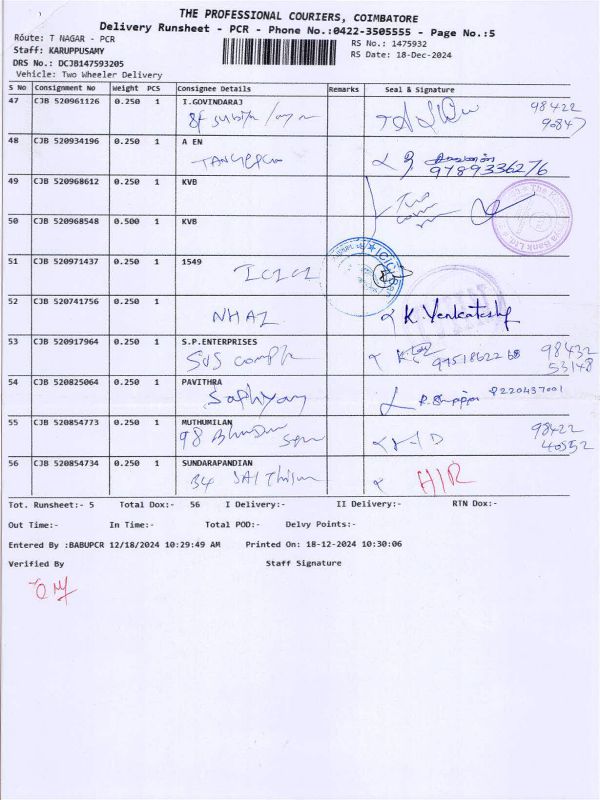 THE PROFESSIONAL COURIERS, COIMBATORE
Delivery Runsheet - PCR - Phone No.:0422-3505555 - Page No.:5
Route: T NAGAR - PCR
RS No.: 1475932
Staff: KARUPPUSAMY
RS Date: 18-Dec-2024
DRS No.: DCJB147593205
Vehicle: Two Wheeler Delivery
S No Consignment No Weight PCS Consignee Details Remarks Seal & Signature
47 CJB 520961126 0.250 1 I.GOVINDARAJ
98422
90847
48 CJB 520934196 0.250 1 A EN
9789336276
49 CJB 520968612 0.250 1 KVB
50 CJB 520968548 0.500 1 KVB
51 CJB 520971437 0.250 1 1549
ICICI
52 CJB 520741756 0.250 1
NHAI K. Venkatesh
53 CJB 520917964 0.250 1 S.P.ENTERPRISES
98432
53148
54 CJB 520825064 0.250 1 PAVITHRA
8220437001
55 CJB 520854773 0.250 1 MUTHUMILAN
98
98422
40552
56 CJB 520854734 0.250 1 SUNDARAPANDIAN
34 SAI
Tot. Runsheet:- 5 Total Dox:- 56 I Delivery:- II Delivery:- RTN Dox:-
Out Time:- In Time:- Total POD:- Delvy Points:-
Entered By :BABUPCR 12/18/2024 10:29:49 AM Printed On: 18-12-2024 10:30:06
Verified By Staff Signature